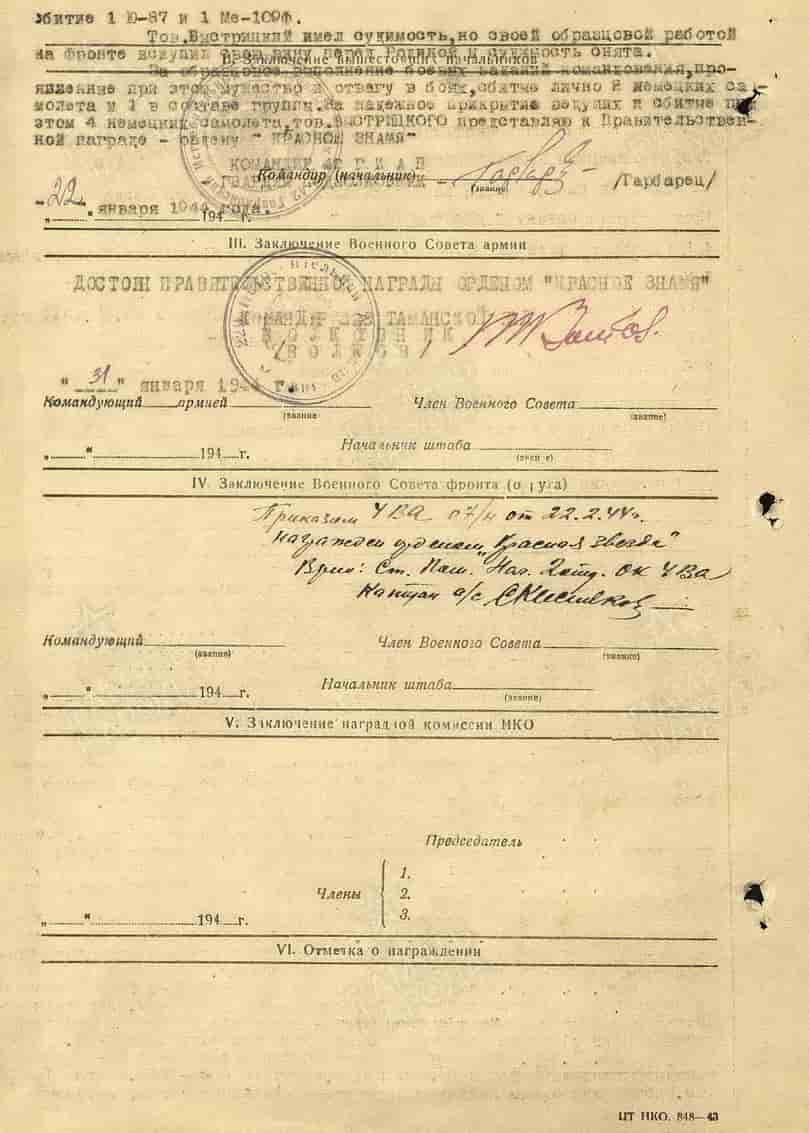 збитие 1 Ю-87 и 1 Ме-109Ф.
Тов.Быстрицкий имел судимость, но своей образцовой работой
на фронте искупил свою вину перед Родиной и судимость снята.
II. Заключение вышестоящих начальников
За образцовое выполнение боевых заданий командования, про-
явленные при этом мужество и отвагу в боях, сбитые лично 2 немецких са-
молета и 1 в составе группы. За надежное прикрытие ведущих и сбитие при
этом 4 немецких самолета, тов. БЫСТРИЦКОГО представляю к Правительствен-
ной награде - ордену " КРАСНОЕ ЗНАМЯ"
КОМАНДИР
Командир (начальник)
ГВАРДИИ ПОДПОЛКОВНИК - /Гарбарец/
(звание)
"22" января 1944 года.
„ “ 194 г.
III. Заключение Военного Совета армии
ДОСТОИН ПРАВИТЕЛЬСТВЕННОЙ НАГРАДЫ ОРДЕНОМ "КРАСНОЕ ЗНАМЯ"
КОМАНДИР ТАМАНСКОЙ
ПОЛКОВНИК
/ВОЛКОВ/
"31" января 1944 г.
Командующий армией Член Военного Совета
(звание) (звание)
„ “ 194 г. Начальник штаба
(звание)
IV. Заключение Военного Совета фронта (округа)
Приказом 4 ВА 07/н от 22.2.44г.
награжден орденом „Красная звезда"
Врио: Ст. Пом. Нач. 2 отд. ОК 4 ВА
Капитан а/с
Командующий Член Военного Совета
(звание) (звание)
„ “ 194 г. Начальник штаба
(звание)
V. Заключение наградной комиссии МКО
Председатель
Члены
1.
2.
3.
„ “ 194 г.
VI. Отметка о награждении
ЦТ НКО. 848—43